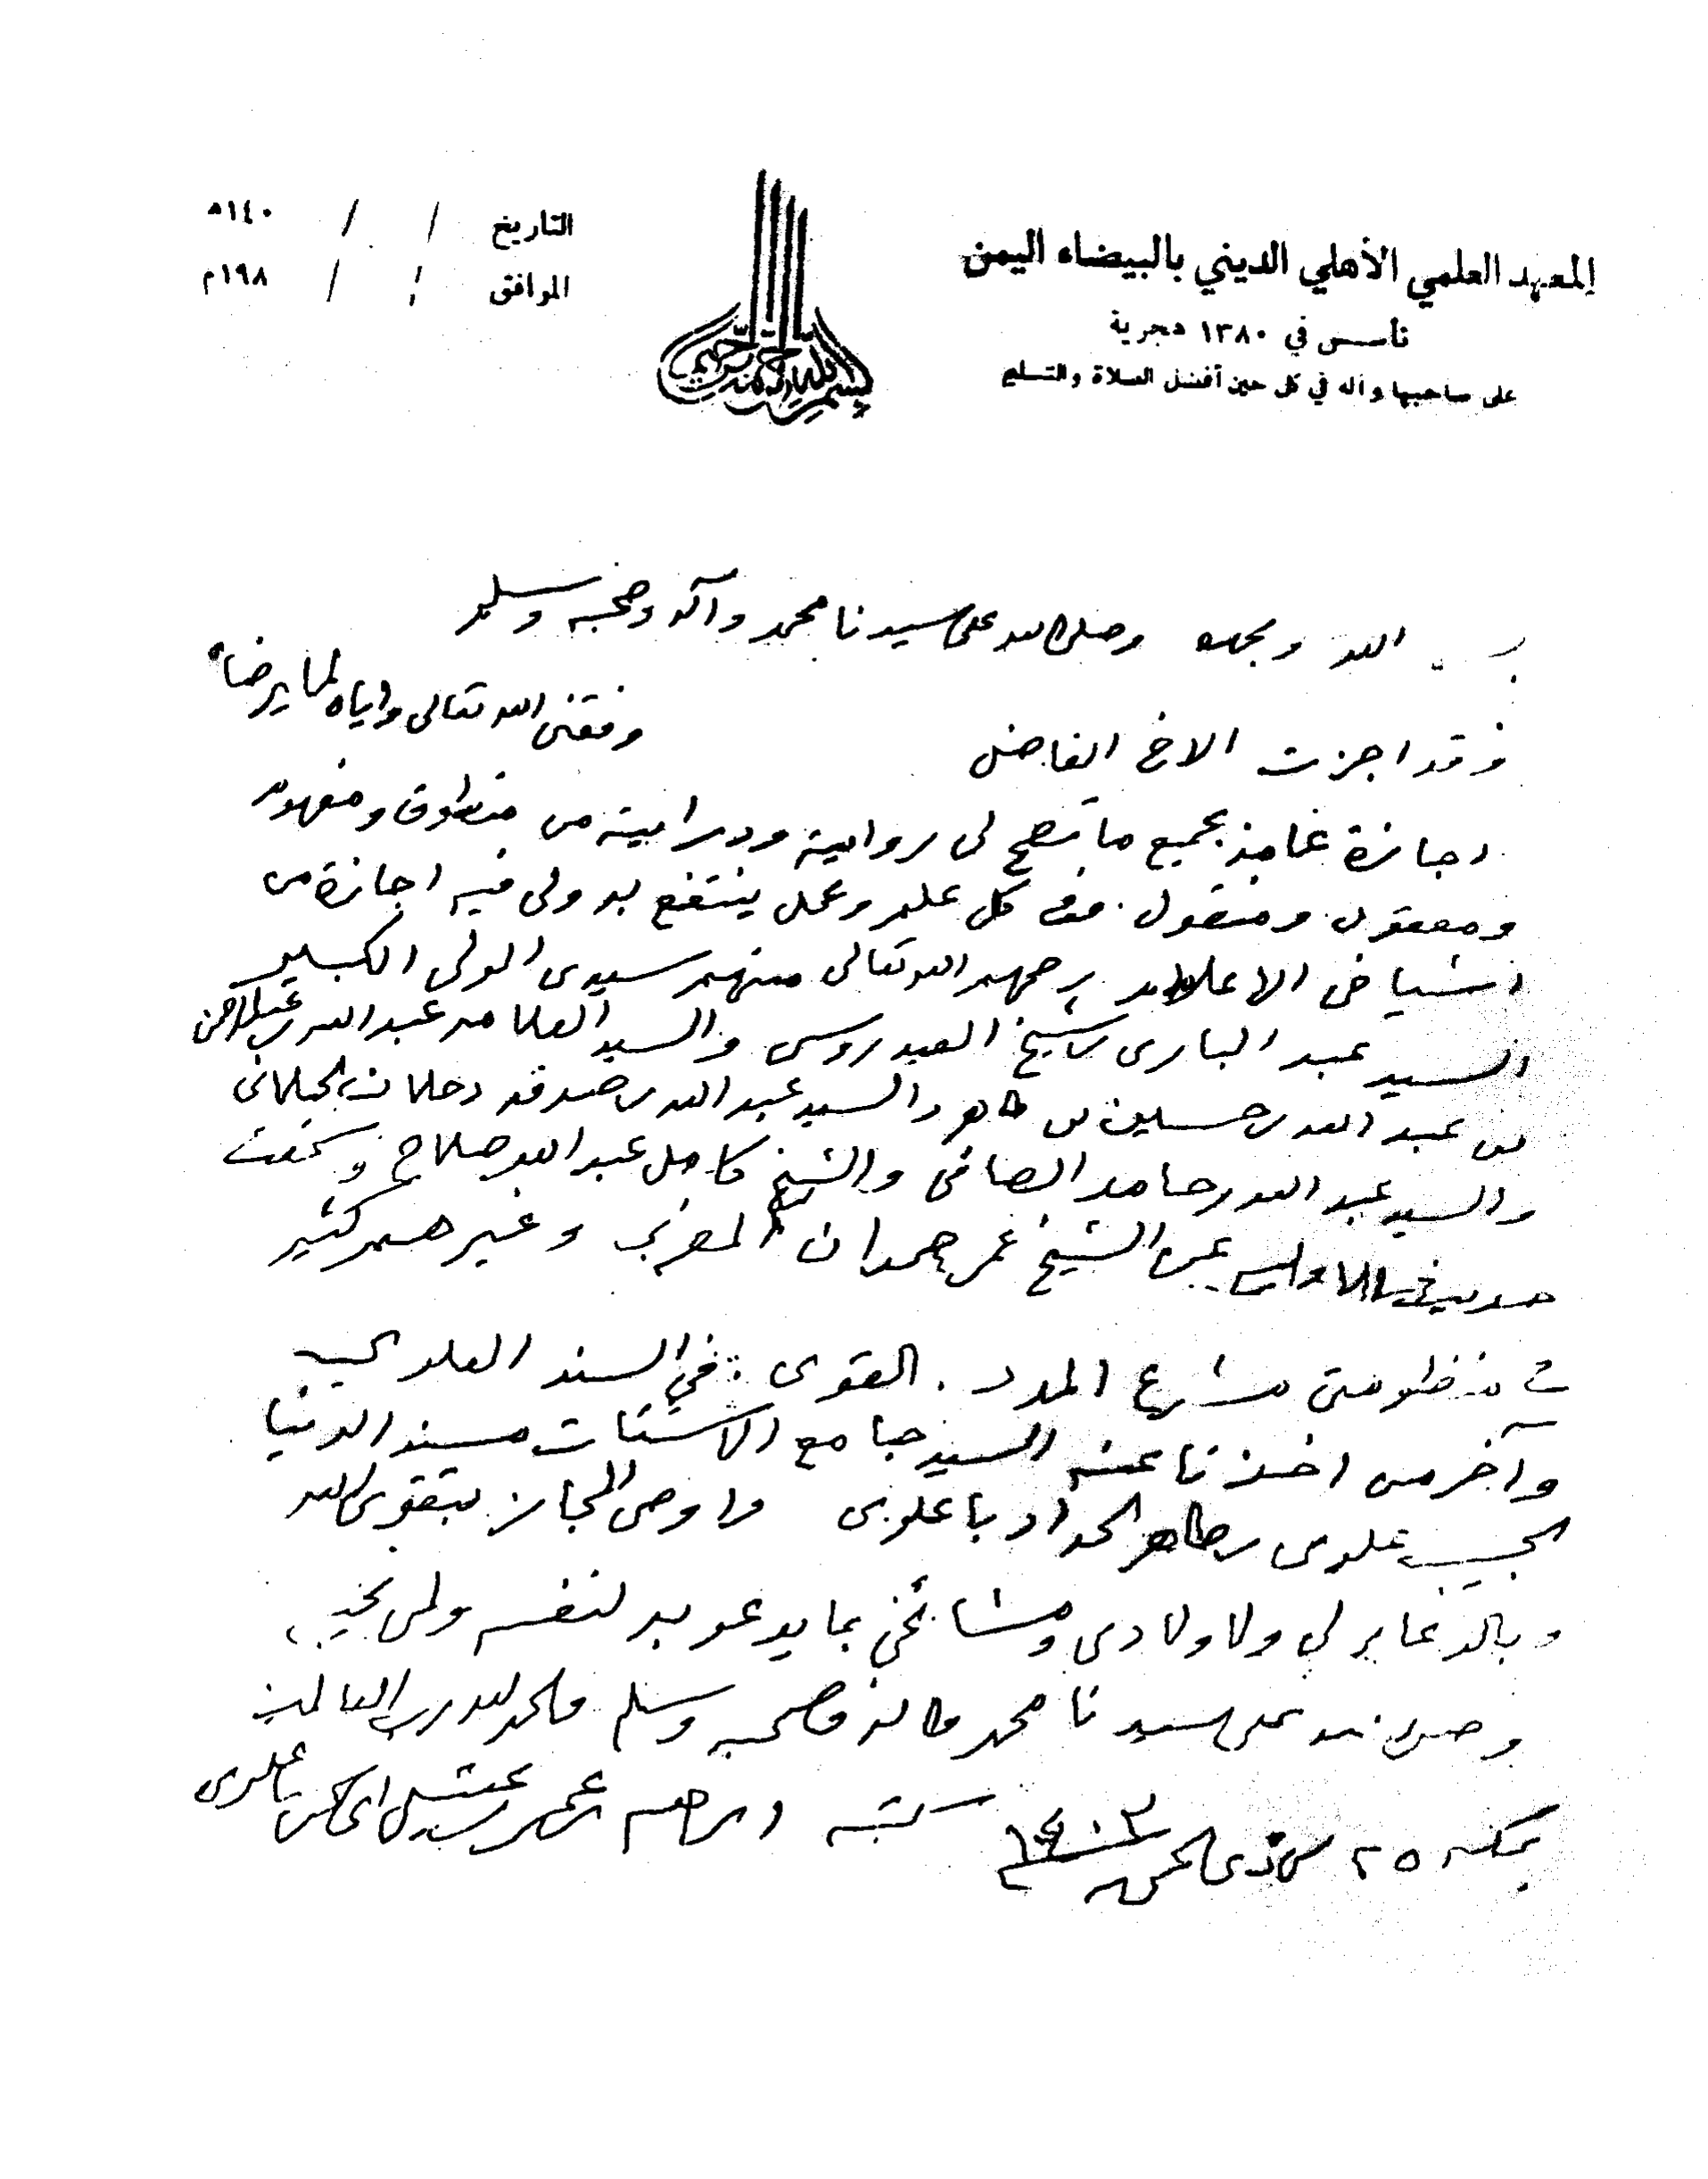 المعهد العلمي الأهلي الديني بالبيضاء اليمن
تأسس في ١٣٨٠ هجرية
على صاحبها وآله في كل حين أفضل الصلاة والتسليم
بسم الله الرحمن الرحيم
التاريخ / / ١٤٠ه
الموافق / / ١٩٨م
الله وبحمده وصلى الله على سيدنا محمد وآله وصحبه وسلم
وقد اجزت الاخ الفاضل وفقني الله تعالى واياه لما يرضاه
اجازة عامة بجميع ما تصح لي رواية ودراية من منطوق ومفهوم
ومعقول ومنقول وفي كل علم وعمل ينتفع به ولي فيه اجازة من
اشياخي الاعلام رحمهم الله تعالى منهم سيدي الولي الكبير
السيد عبد الباري بن شيخ العيدروس والسيد العلامه عبد الله بن عبدالرحمن
بن عبد الله بن حسين بن طاهر والسيد عبد الله بن صدقه دحلان الجيلاني
والسيد عبد الله بن حامد الصافي والشيخ كامل عبد الله صلاح وسمعت
حديث الاوليه عن الشيخ عمر حمدان المغربي وغيرهم كثير
في منظومتي مشرع المدد القوي : في السند العلوي
وآخر من اخذنا عنه السيد جامع الاشتات مسند الدنيا
الحبيب علوي بن طاهر الحداد باعلوي واوصي المجاز بتقوى الله
وبالدعاء لي ولاولادي ومشائخي بما يدعو به لنفسه ولمن يحب
وصلى الله على سيدنا محمد واله وصحبه وسلم والحمد لله رب العالمين
بمكه ٢٥ من ذي الحجه ١٤٠٣ كتبه ابراهيم بن عمر بن عقيل بن يحيى باعلوي